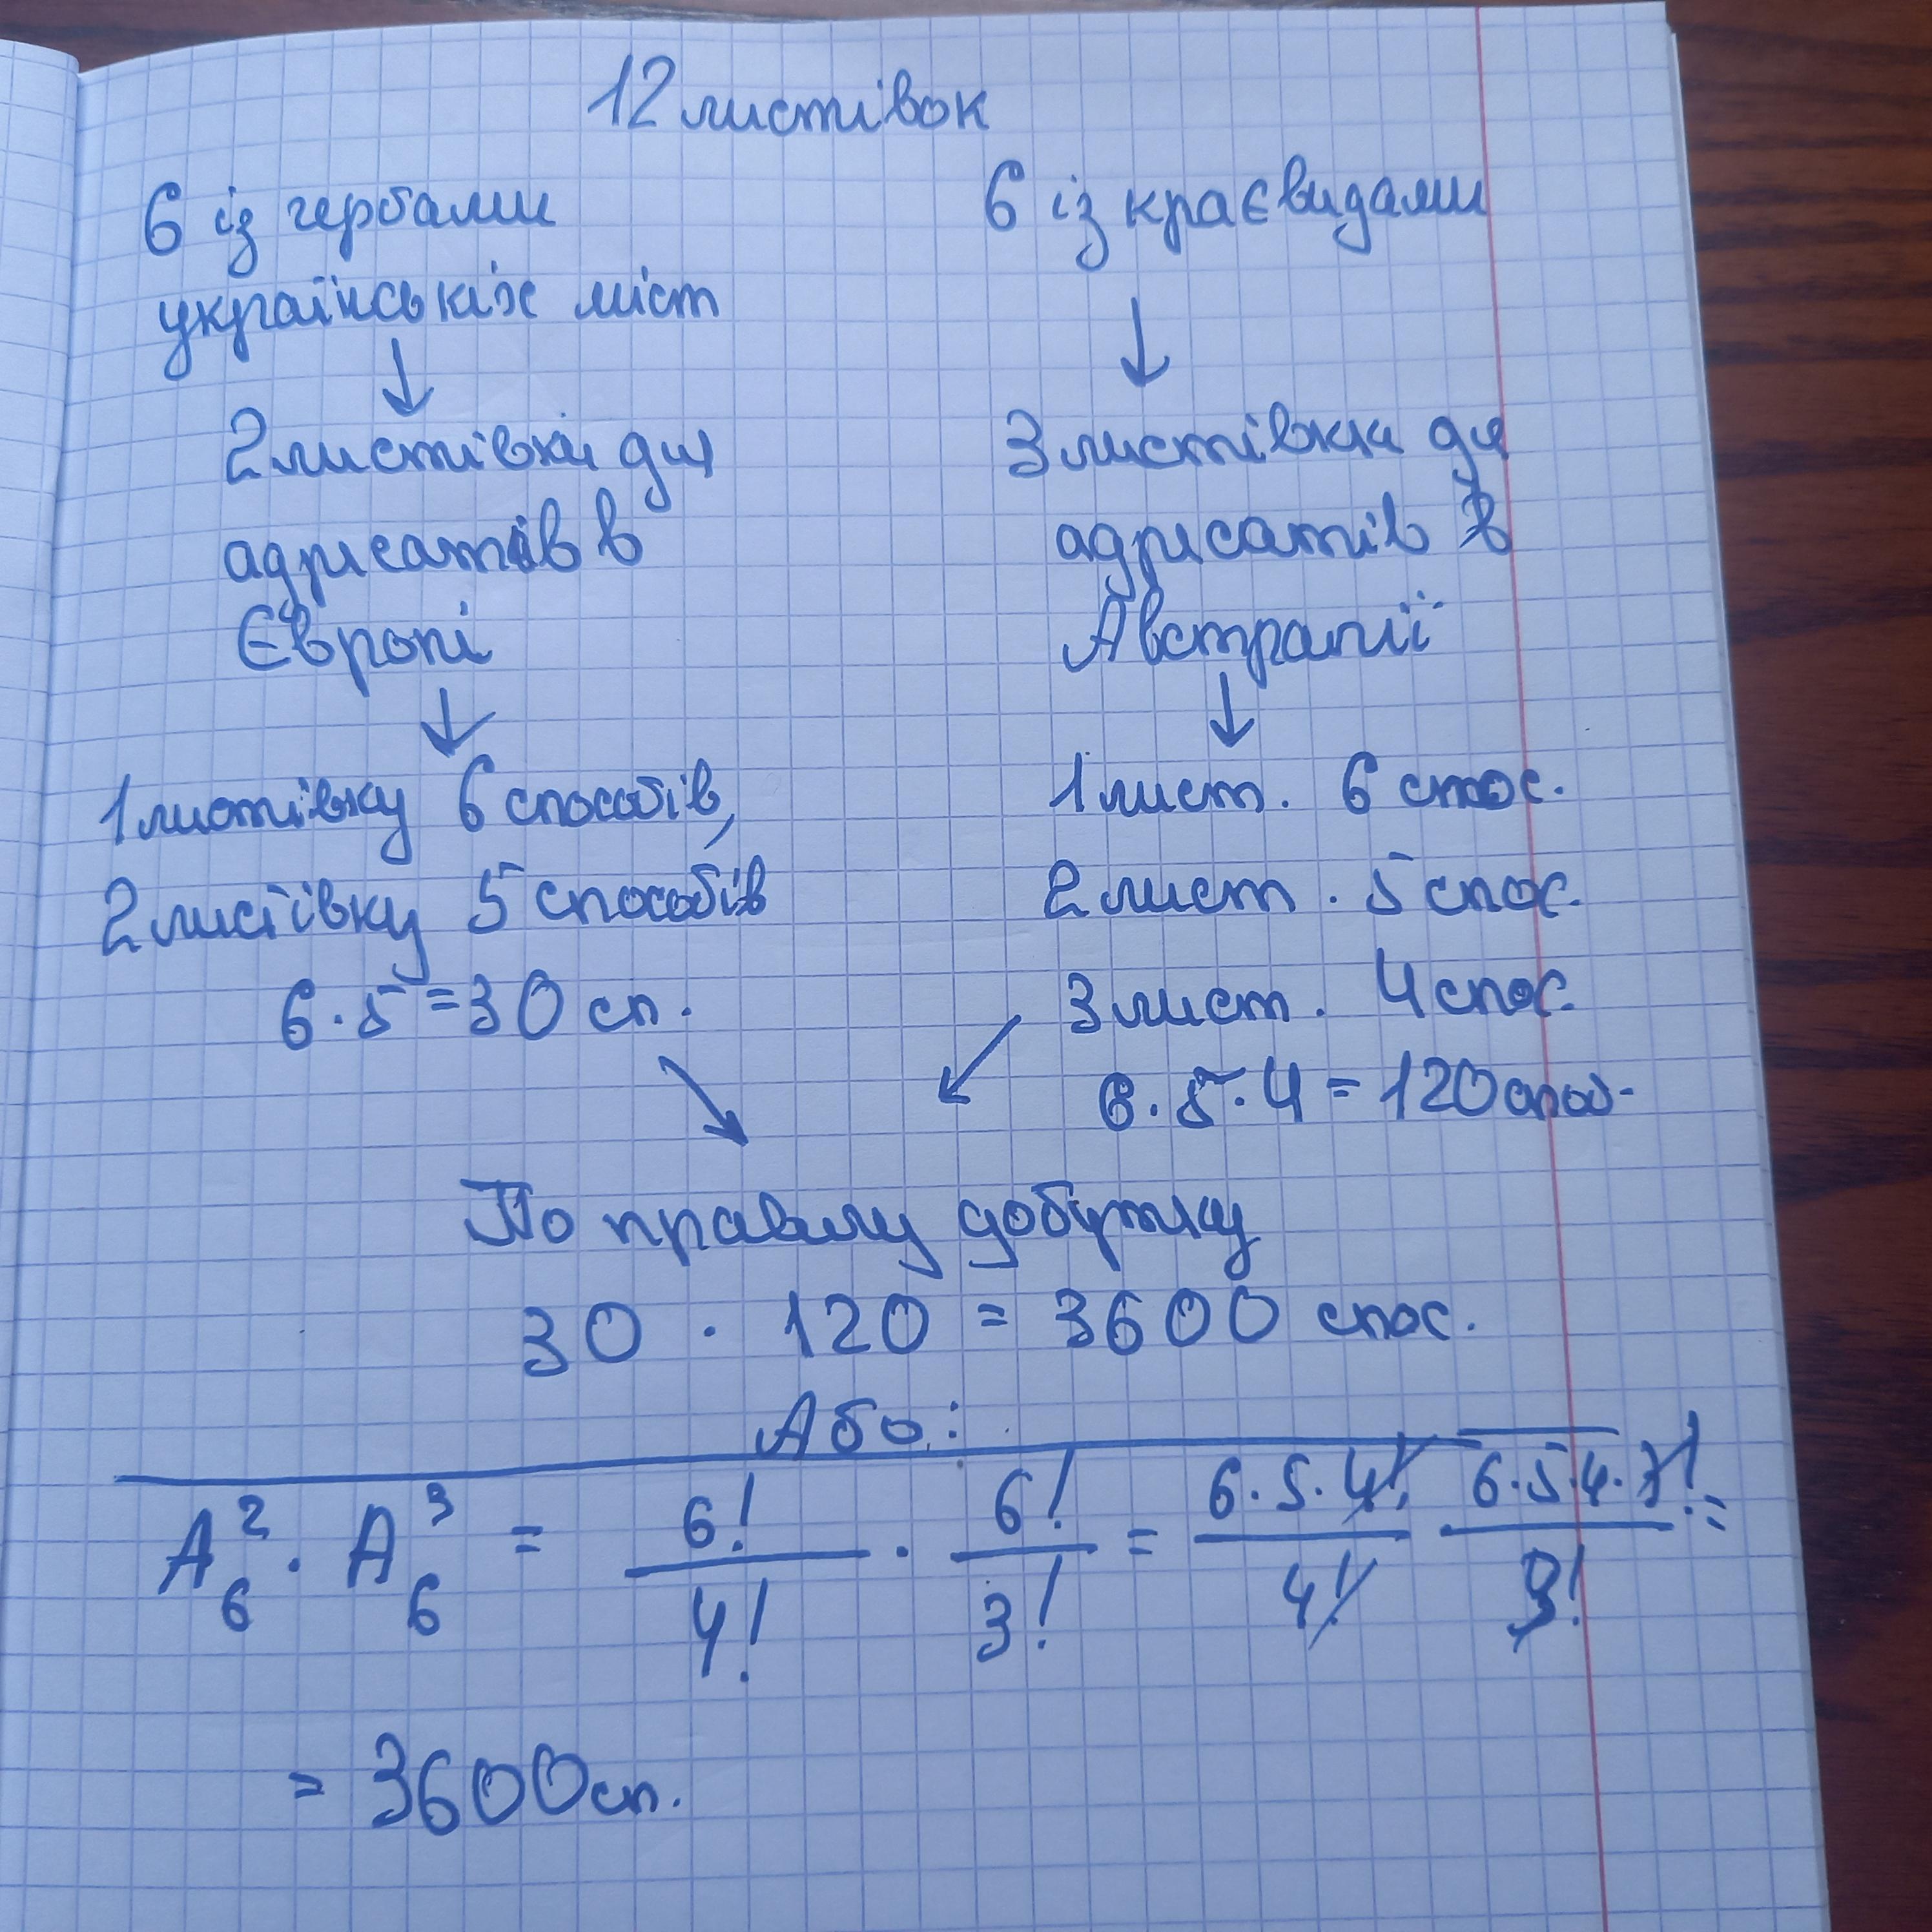 12 листівок
6 із гербами
українськіх міст
2 листівки для
адресатів в
Європі
1 листівку 6 способів,
2 листівку 5 способів
6 · 5 = 30 сп.
6 із краєвидами
3 листівки для
адресатів в
Австралії
1 лист. 6 спос.
2 лист. 5 спос.
3 лист. 4 спос.
6 · 5 · 4 = 120 спос.
По правилу добутку
30 · 120 = 3600 спос.
Або:
A₆² · A₆³ = 6!/4! · 6!/3! = 6·5·4!/4! 6·5·4·3!/3! =
= 3600 сп.